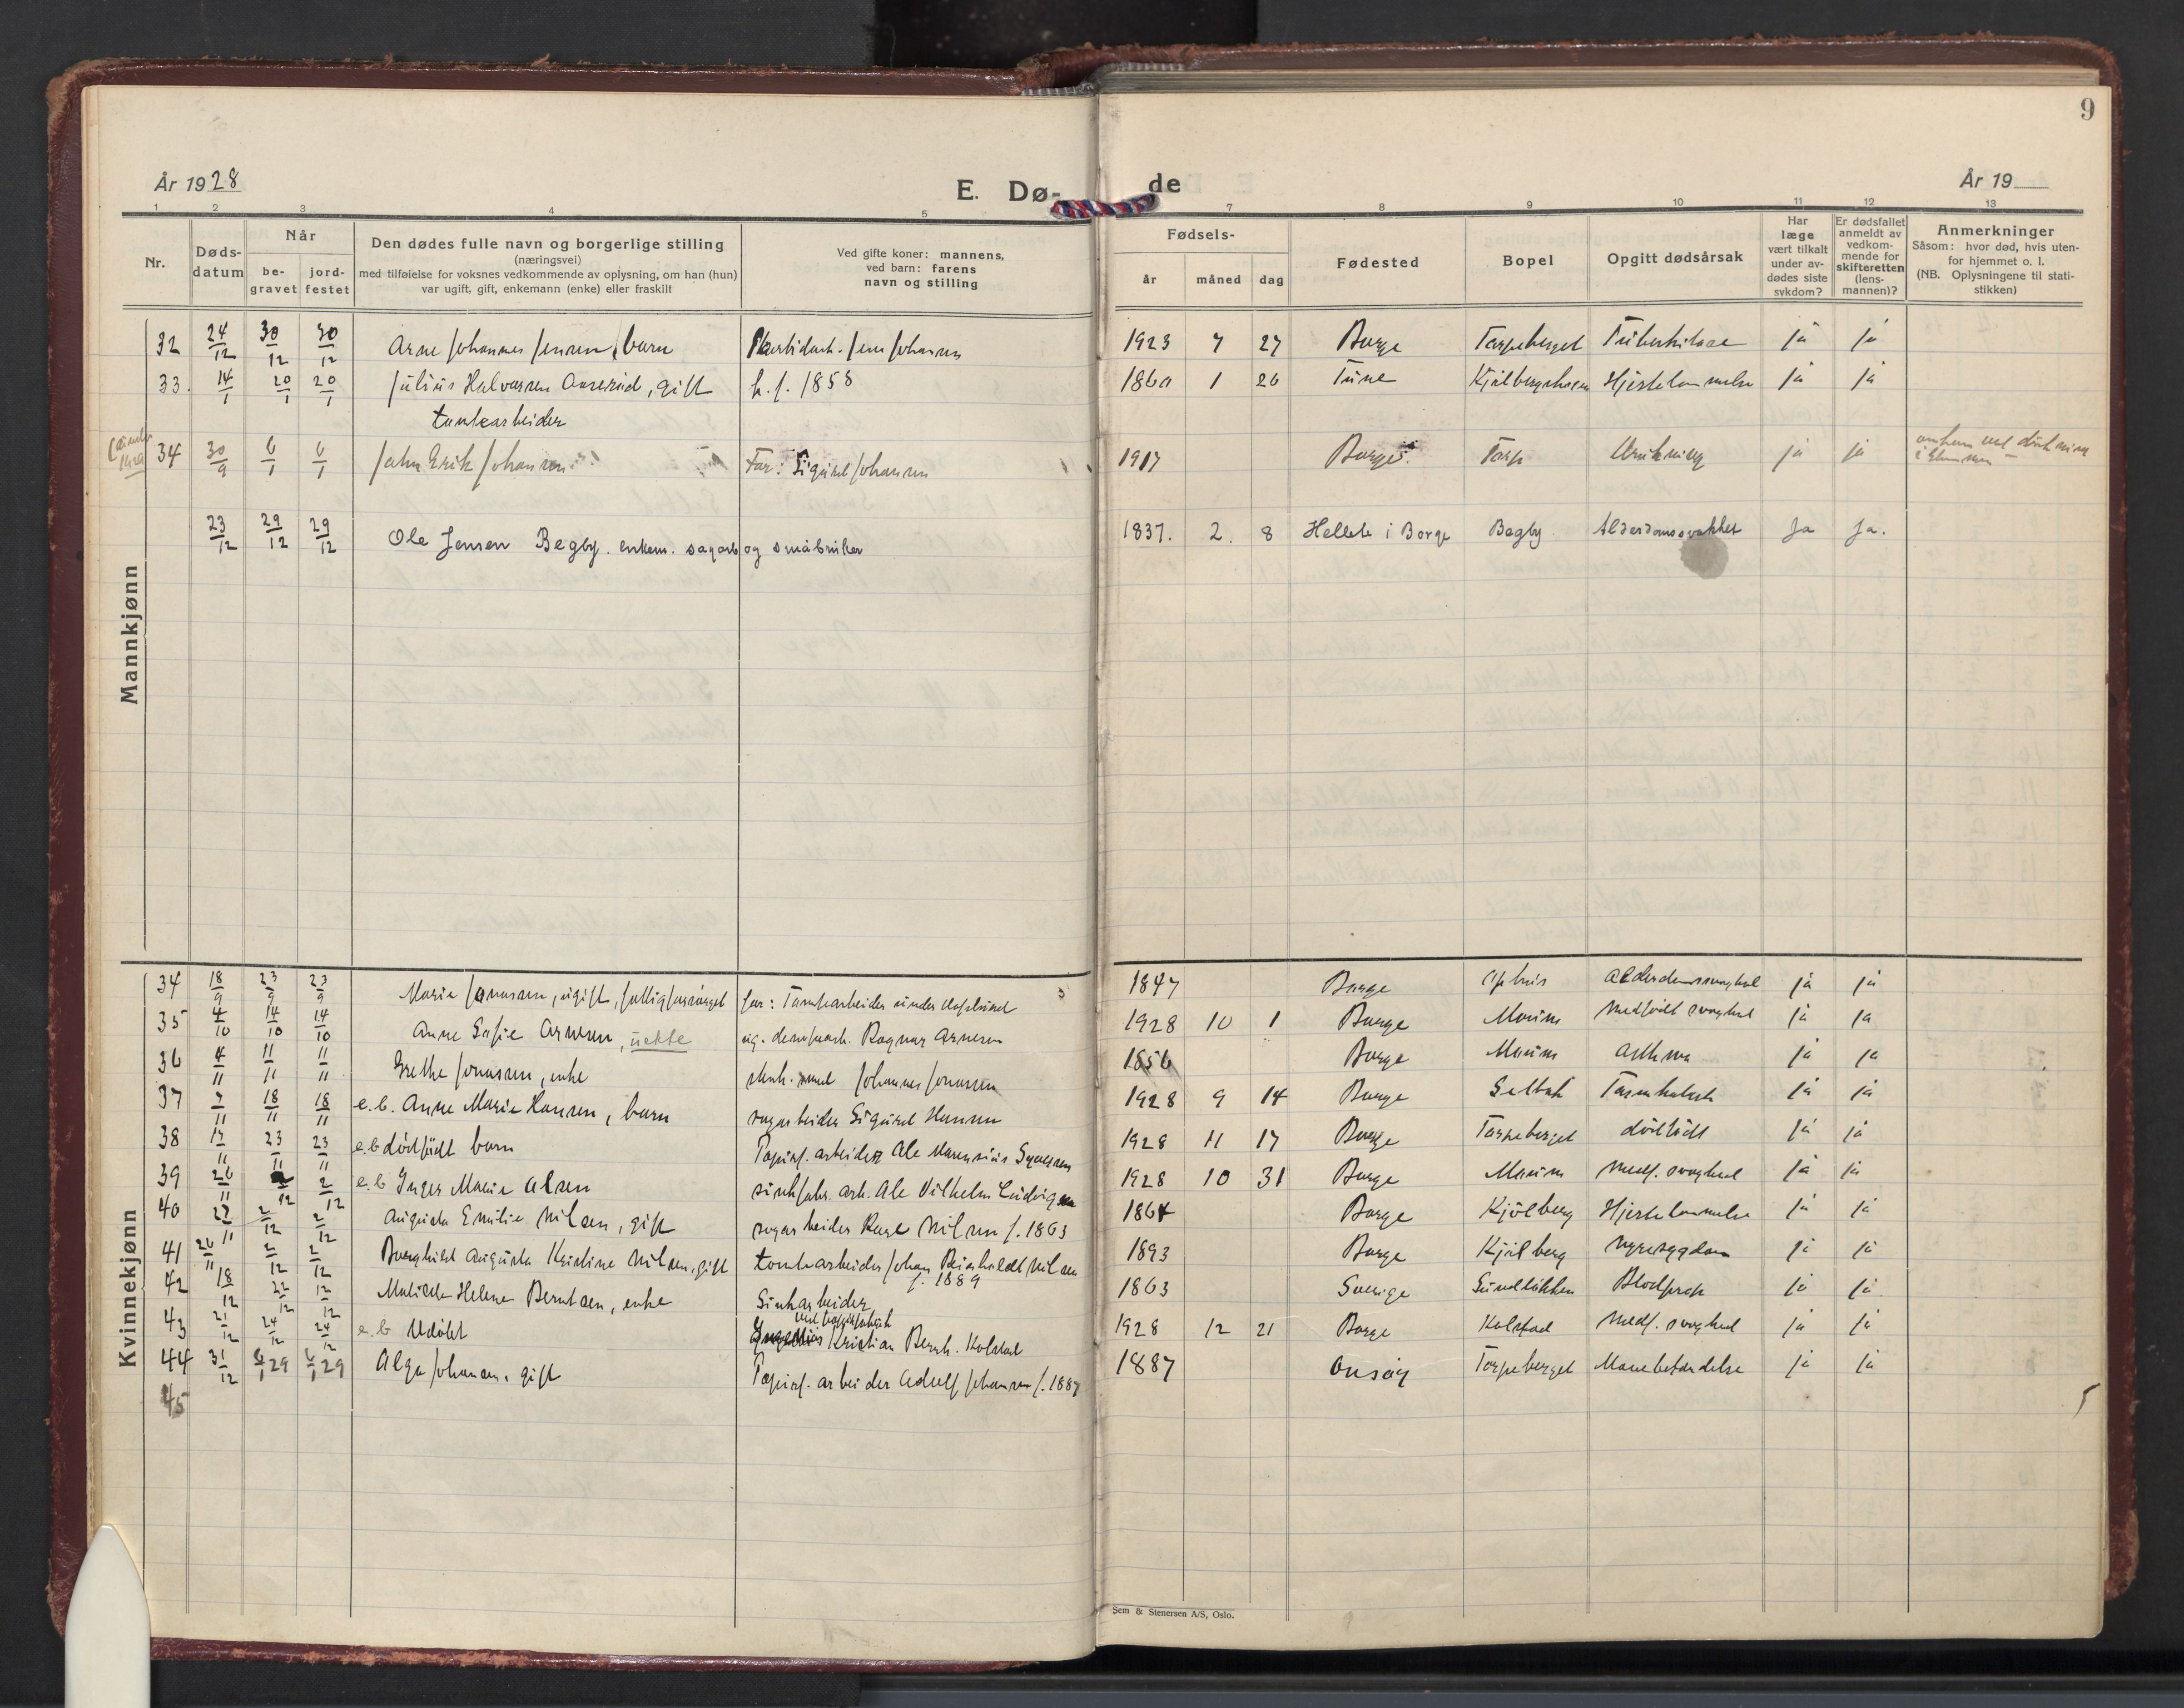 9
År 1928
E. Dø- de
År 19
1 2 3 4 5 7 8 9 10 11 12 13
Nr.
Døds-datum
Når
be-gravet
jord-festet
Den dødes fulle navn og borgerlige stilling
(næringsvei)
med tilføielse for voksnes vedkommende av oplysning, om han (hun)
var ugift, gift, enkemann (enke) eller fraskilt
Ved gifte koner: mannens,
ved barn: farens
navn og stilling
Fødsels-
år måned dag
Fødested
Bopel
Opgitt dødsårsak
Har
læge
vært tilkalt
under av-
dødes siste
sykdom?
Er dødsfallet
anmeldt av
vedkom-
mende for
skifteretten
(lens-
mannen)?
Anmerkninger
Såsom: hvor død, hvis uten-
for hjemmet o. l.
(NB. Oplysningene til stati-
stikken)
Mannkjønn
32 24/12 30/12 30/12 Arne Johannes Jensen, barn Jens Johansen 1923 7 27 Borge Torpeberget Tuberkulose ja ja
33. 14/1 20/1 20/1 Julius Halvorsen Aaserud, gift h. f. 1858 1860 1 26 Tune Hjertelammelse ja ja
tomtearbeider
34 30/9 6/1 6/1 John Erik Johansen Far: Sigurd Johansen 1917 Borge Torp ja ja omkom ved drukning
i Glommen
23/12 29/12 29/12 Ole Jensen Begby. enkem. sagarb og småbruker 1837. 2. 8 Hellete i Borge Begby Alderdomssvakhet Ja Ja.
Kvinnekjønn
34 18/9 23/9 23/9 Marie Jonassen, ugift, fattigforsørget far: Tomtearbeider 1847 Borge Aphus ja ja
35 4/10 14/10 14/10 Anne Sofie Arnesen, uekte Ragnar Arnesen 1928 10 1 Borge Moum Medfödt svaghed ja ja
36 4/11 11/11 11/11 Grethe Jonassen, enke Johannes Jonassen 1856 Borge Moum Asthma ja ja
37 18/11 18/11 e.b. Anne Marie Hansen, barn sagarbeider Sigurd Hansen 1928 9 14 Borge Selbak Tarmkatarh ja ja
38 23/11 23/11 e.b dödfödt barn Papirf. arbeider Ole 1928 11 17 Borge Torpeberget dödfödt ja ja
39 26/11 2/12 2/12 e.b Inger Marie Olsen sinkfabr. arb. Ole Vilhelm Ludvigsen 1928 10 31 Borge Moum Medf. svaghed ja ja
40 2/12 2/12 Augusta Emilie Nilsen, gift sagarbeider Karl Nilsen f. 1863 1864 Borge Kjölberg Hjertelammelse ja ja
41 26/11 2/12 2/12 Borghild Augusta Kristine Nilsen, gift tomtearbeider Johan Reinholdt Nilsen
f. 1889 1893 Borge Kjölberg Nyresygdom ja ja
42 18/12 22/12 Matilde Helene Berntsen, enke Sinkarbeider 1863 Sverige Sundlökken Blodprop ja ja
43 21/12 24/12 24/12 e.b Udöbt Kristian Bernh. Kolstad 1928 12 21 Borge Kolstad Medf. svaghed ja ja
44 31/12 6/1 29 6/1 29 Olga Johansen, gift Papirf. arbeider Adolf Johansen f. 1887 1887 Onsöy Torpeberget ja ja
45
Sem & Stenersen A/S, Oslo.